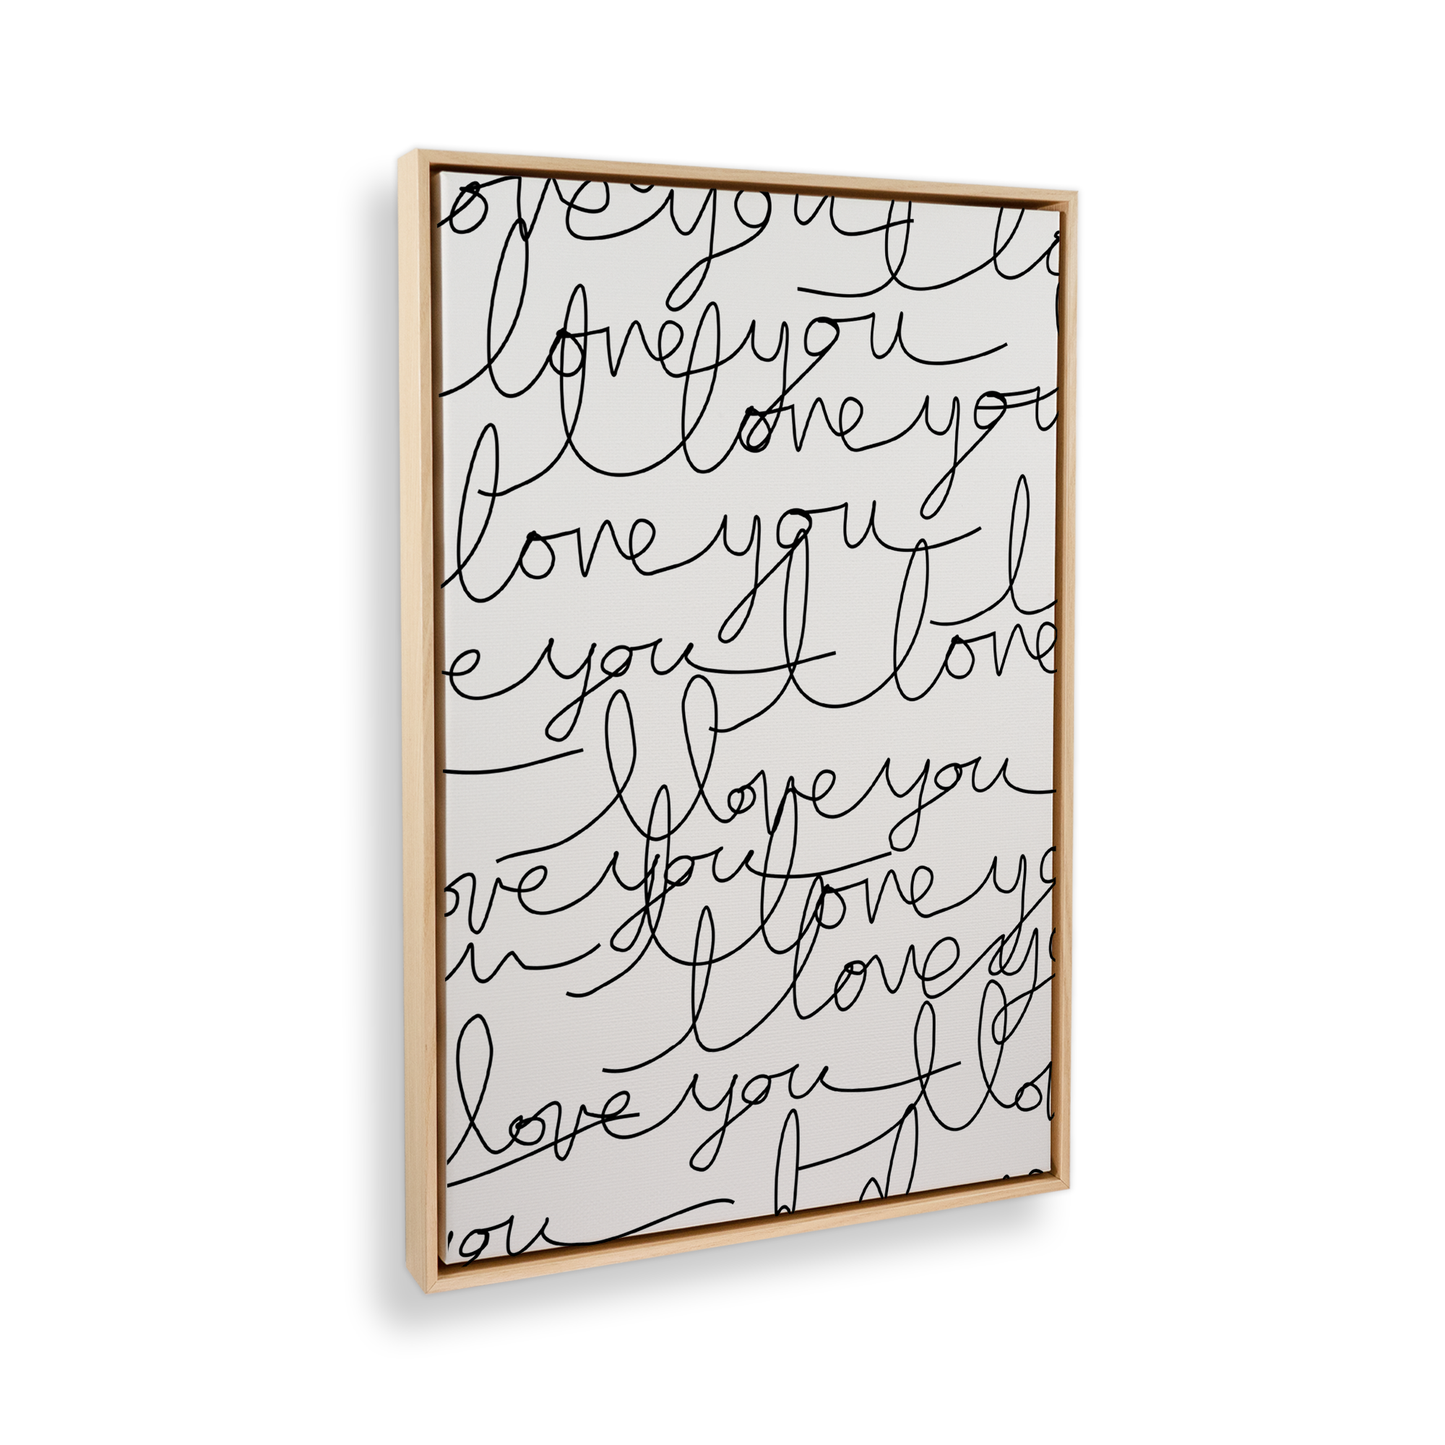 ove you I lo
love you
I love you
love you I
e you I love
I love you
ove you I love yo
u I love y
love you I lo
ou I l